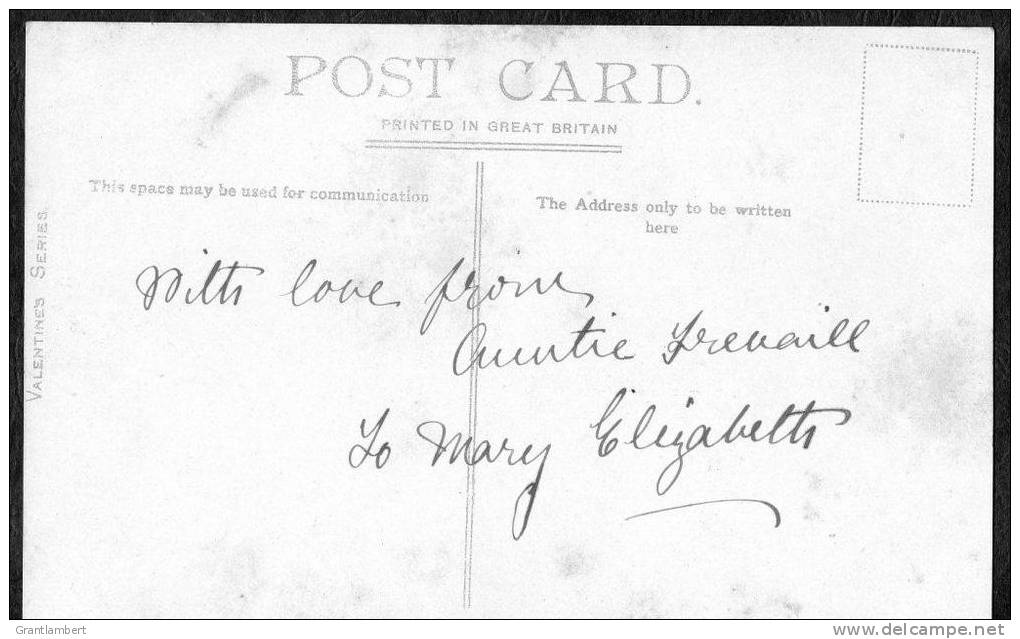 POST CARD.
PRINTED IN GREAT BRITAIN
This space may be used for communication
The Address only to be written
here
VALENTINE'S SERIES.
With love from
Auntie Trevaill
To Mary Elizabeth
Grantlambert
delcampe.net